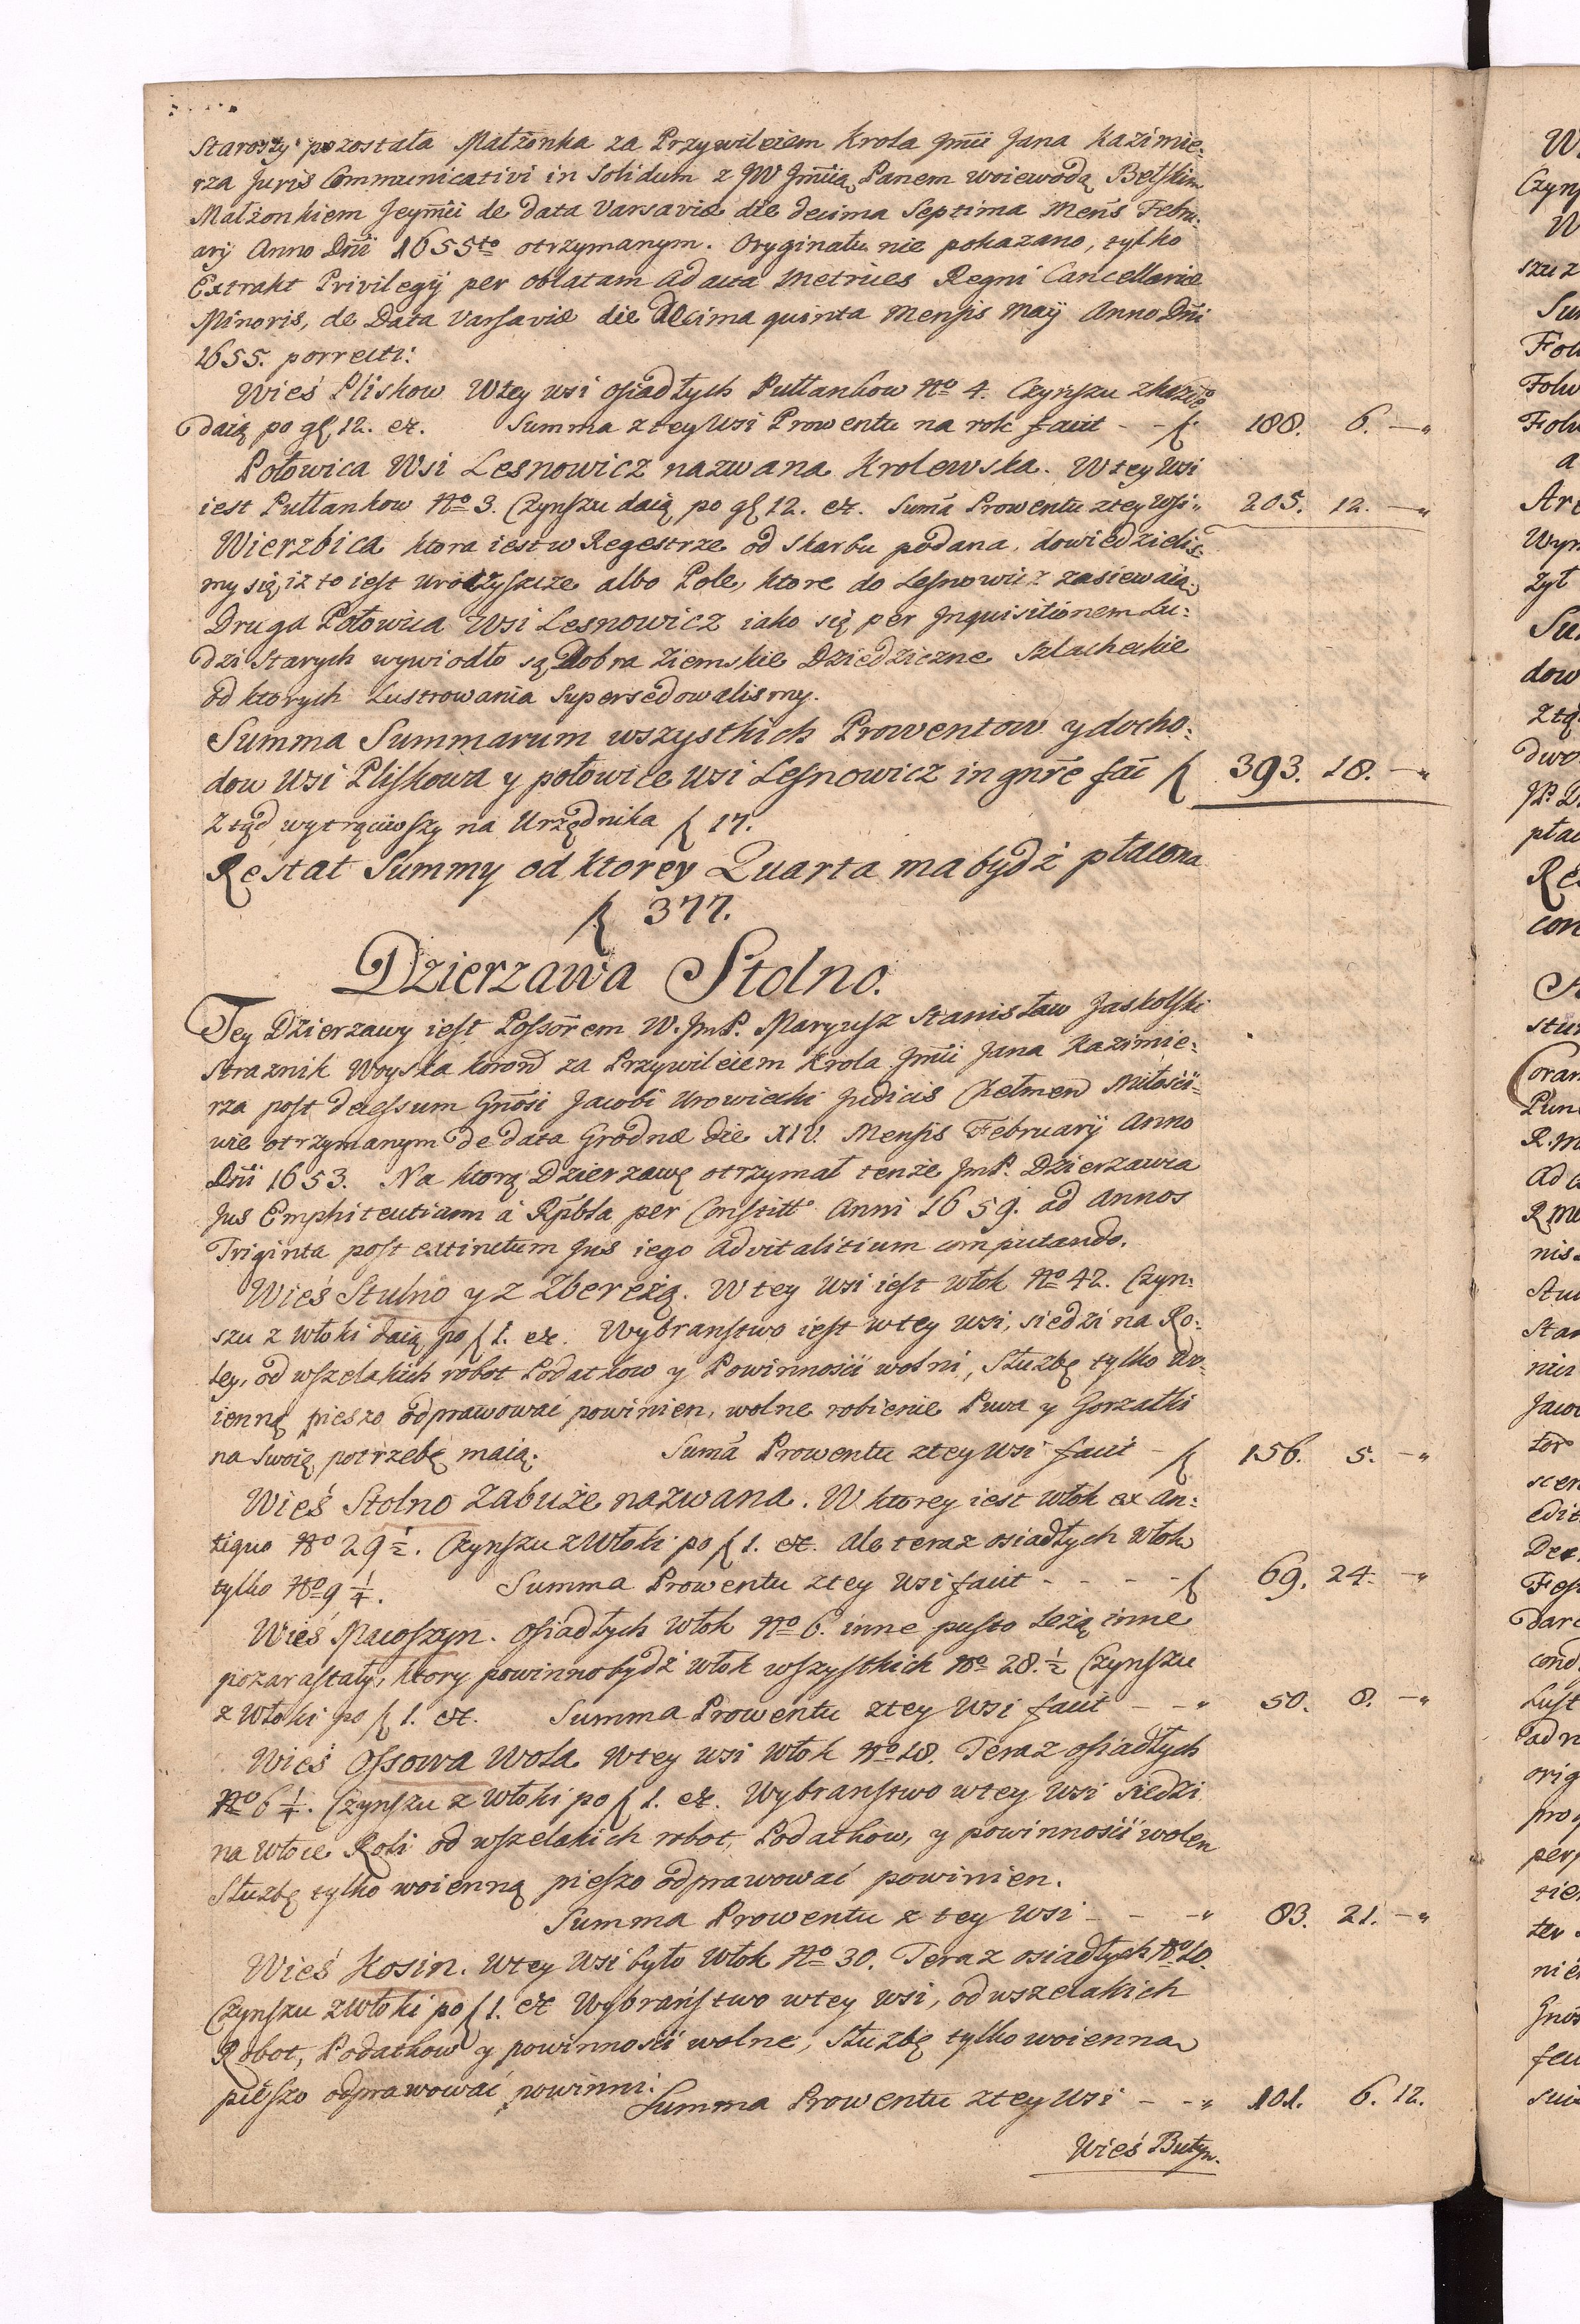 Starosty pozostała Małżonka za Przywileiem Krola Jmci Jana Kazimie:
rza Juris Communicativi in Solidum z JW Jmcią Panem Woiewodą Bełskim
Małżonkiem Jeymci de Data Varsaviæ die decima Septima Mens Febru:
arÿ Anno Dni 1655to otrzymanym. Oryginału nie pokazano, tylko
Extrakt Privilegÿ per oblatam ad acta Metrices Regni Cancellariæ
Minoris, de Data Varsaviæ die Decima quinta Mensis Maÿ Anno Dni
1655. porrecti:
Wieś Pliskow W tey wsi osiadłych Pułłankow No 4. Czynszu z każdo
daią po gl 12. etc. Summa z tey Wsi Prowentu na rok facit - - f. 188. 6. —„
Połowica Wsi Lesnowicz nazwana Krolewska. W tey Wsi
iest Pułłankow No 3. Czynszu daią po gl 12. etc. Suma Prowentu z tey Wsi „ 205. 12. —„
Wierzbica ktora iest w Regestrze od Skarbu podana, dowiedzielis:
my się, iż to iest uroczyszcze albo Pole, ktore do Lesnowicz zasiewaią
Druga Połowica Wsi Lesnowicz iako się per Inquisitionem Lu:
dzi Starych wywiodło są Dobra Ziemskie Dziedziczne Szlacheckie
od ktorych Lustrowania Supersedowalismy.
Summa Summarum wszystkich Prowentow y docho:
dow Wsi Pliskowa y połowice Wsi Lesnowicz in gnre fac f 393. 18. —„
Z tąd wytrąciwszy na Urzędnika f 17.
Restat Summy od ktorey Quarta ma bydź płacona
f 377.
Dzierzawa Stolno.
Tey Dzierzawy iest Possorem W. JmP. Maryusz Stanisław Jaskolski
Straznik Woyska koron za Przywileiem Krola Jmci Jana Kazimie:
rza post decessum Gnosi Jacobi Urowiecki Judicis Chełmen Miłości:
wie otrzymanym de data Grodnæ die XIV. Mensis Februarÿ Anno
Dni 1653. Na ktorą Dzierzawę otrzymał tenże JmP. Dzierzawca
Jus Emphiteuticum a Rpbla per Constitt Anni 1659. ad Annos
Triginta post extinctum Jus iego Advitalitium computando.
Wieś Stulno y z Zbereżą. W tey Wsi iest włok No 42. Czyn:
szu z Włoki daią po f 1. etc. Wybranstwo iest w tey Wsi, siedzi na Ro:
ley, od wszelakich robot Podatkow y Powinności wolni, Służbę tylko wo:
ienną pieszo odprawować powinien, wolne robienie Piwa y Gorzałki
na swoią potrzebę maią. Suma Prowentu z tey Wsi facit - f 156. 5. —„
Wieś Stolno Zabuże nazwana. W ktorey iest włok ex An:
tiquo No 29 ½. Czynszu z Włoki po f 1. etc. Ale teraz osiadłych Włok
tylko No 9 ¼. Summa Prowentu z tey Wsi facit - - - - f 69. 24. —„
Wieś Macoszyn. Osiadłych Włok No 6. inne pusto leżą inne
pozarastały, ktory powinno bydź włok wszystkich No 28. ½ Czynszu
z Włoki po f 1. etc. Summa Prowentu z tey Wsi facit - - „ 50. 8. —„
Wieś Ossowa Wola W tey Wsi Włok No 18. Teraz osiadłych
No 6 ¼. Czynszu z Włoki po f 1. etc. Wybranstwo w tey Wsi siedzi
na Włoce Roli od wszelakich robot, Podatkow, y powinności wolen
Służbę tylko woienną pieszo odprawować powinien.
Summa Prowentu z tey Wsi - - - „ 83. 21. —„
Wieś Kosin. W tey Wsi było Włok No 30. Teraz osiadłych No 10.
Czynszu z Włoki po f 1. etc Wybraństwo w tey Wsi, od wszelakich
Robot, Podatkow y powinności wolne, Służbę tylko woienną
pieszo odprawować powinni. Summa Prowentu z tey Wsi - - „ 101. 6. 12.
Wieś Butyn.